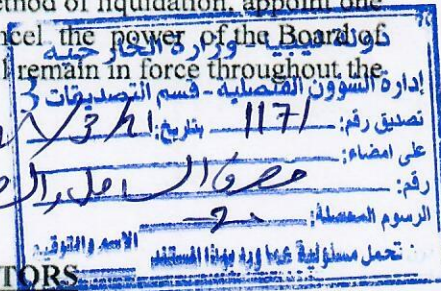 ethod of liquidation, appoint one
ncel the power of the Board of
l remain in force throughout the
دولة ليبيا - وزارة الخارجية
إدارة الشؤون القنصلية - قسم التصديقات 3
تصديق رقم: 1171 بتاريخ: 3/21
على امضاء:
رقم:
الرسوم المحصلة:
الاسم والتوقيع
تحمل مسئولية عما ورد بهذا المستند
TORS